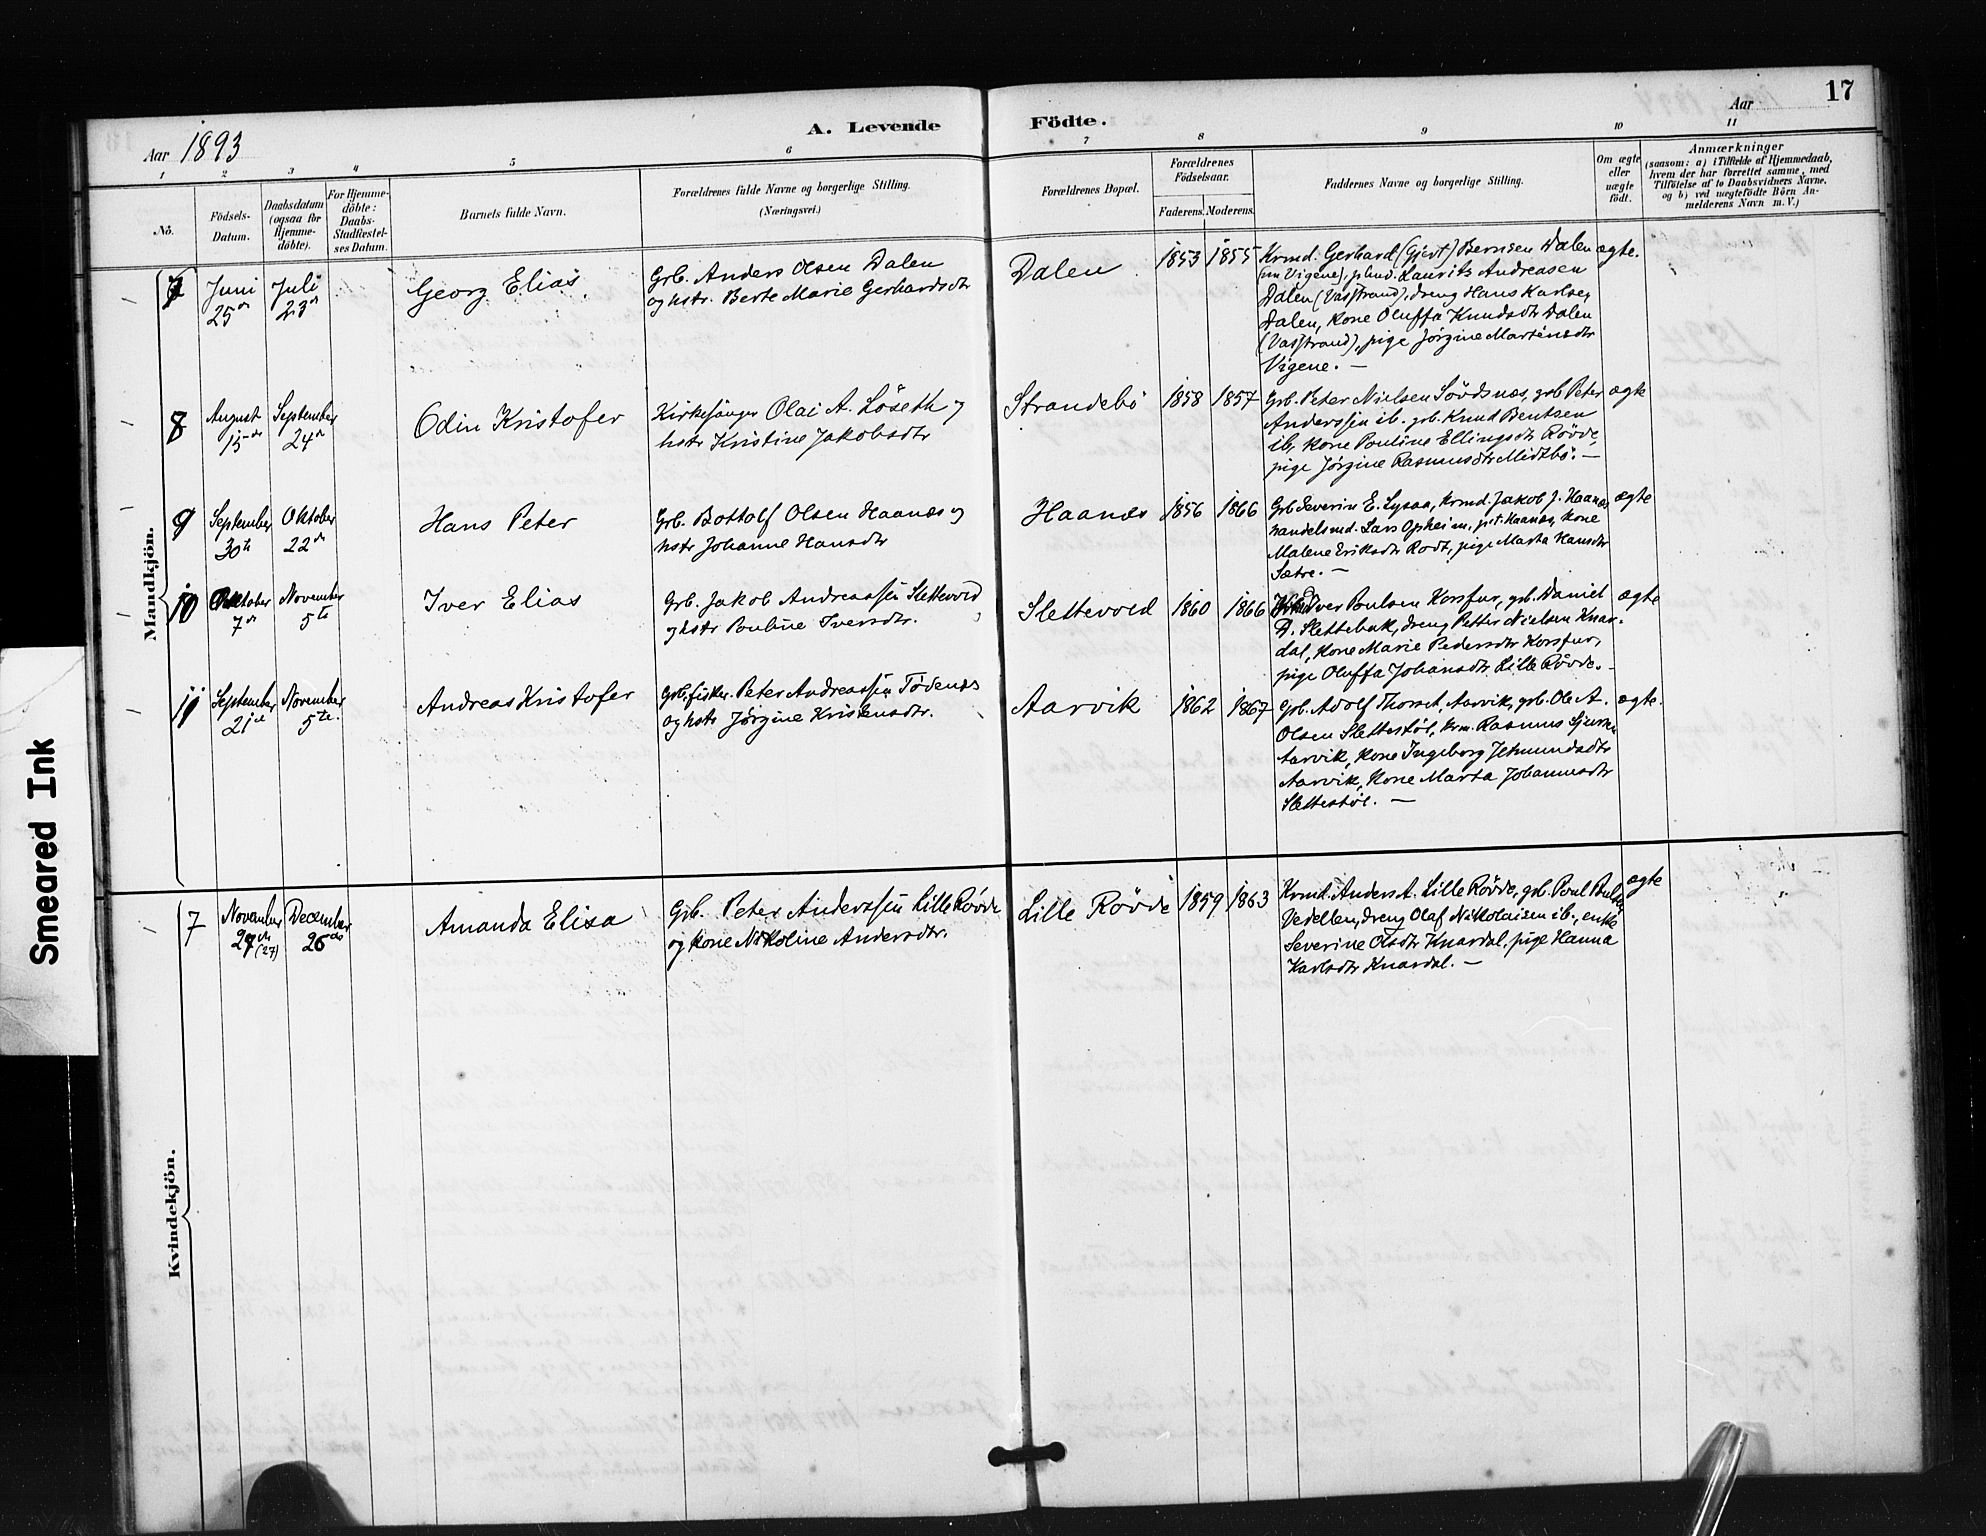 17
Aar 1893
A. Levende Födte.
Aar
1 2 3 4 5 6 7 8 9 10 11
No.
Födsels-
Datum.
Daabsdatum
(ogsaa for
Hjemme-
döbte).
For Hjemme-
döbte:
Daabs-
Stadfæstel-
ses Datum.
Barnets fulde Navn.
Forældrenes fulde Navne og borgerlige Stilling.
(Næringsvei.)
Forældrenes Bopæl.
Forældrenes
Födselsaar.
Faderens. Moderens.
Faddernes Navne og borgerlige Stilling.
Om ægte
eller
uægte
födt.
Anmærkninger
(saasom: a) i Tilfælde af Hjemmedaab,
hvem der har forrettet samme, med
Tilföielse af to Daabsvidners Navne,
og b) ved uægtefödte Börn An-
melderens Navn m. V.)
Mandkjön.
7
Juni
25de
Juli
23de
Georg Elias
Grb. Anders Olsen Dalen
og hstr. Berte Marie Gerhardsdtr
Dalen
1853
1855
Krmd. Gerhard (Gjert) Berntsen Dalen
Vigene), Laurits Andreasen
Dalen (Vasstrand), dreng Hans Karlsen
Dalen, kone Oluffa Knudsdtr Dalen
(Vasstrand), pige Jørgine Martensdtr
Vigene. —
ægte.
8
August
15de
September
24de
Odin Kristofer
Kirkesanger Olai A. Löseth og
hstr Kristine Jakobsdtr
Strandebö
1858
1857
Grb. Peter Nielsen Sövdsnæs, grb Peter
Anderssen ib. grb. Knud Bentsen
ib, kone Pouline Ellingsdtr Rövde,
pige Jørgine Rasmusdtr Midtbö. —
ægte
9
September
30te
Oktober
22de
Hans Peter
Grb. Bottolf Olsen Haanæs og
hstr Johanne Hansdtr
Haanæs
1856
1866
Grb Severin E. Lysaa, krmd. Jakob J. Haanæs
handelsmd. Lars Opheim, p.t. Haanæs, kone
Malene Eriksdtr Rodt, pige Marta Hansdtr
Sætre. —
ægte
10
Oktober
7de
November
5te
Iver Elias
Grb. Jakob Andreassen Slettevold
og hstr Pouline Iversdtr.
Slettevold
1860
1866
Iver Poulsen Korsfur, grb. Daniel
D. Slettebak, dreng Petter Nielsen Knar-
dal, kone Marie Pedersdtr Korsfur,
pige Oluffa Johansdtr Lille Rövde. -
ægte
11
September
21de
November
5te.
Andreas Kristofer
Grb. fisker Peter Andreassen Tödenes
og hstr Jørgine Kristensdtr.
Aarvik
1862
1867
Grb. Adolf Thorset, Aarvik, grb. Ole A.
Olsen Slettestöl, krm. Rasmus
Aarvik, kone Ingeborg Jetmundsdtr
Aarvik, kone Marta Johannesdtr
Slettestöl. —
ægte.
Kvindekjön.
7
November
27de (27)
December
26de
Amanda Elisa
Grb. Peter Anderssen Lille Rövde
og kone Nikoline Andersdtr.
Lille Rövde
1859
1863
Krmd. Anders A. Lille Rövde, grb. Poul
Vedellen, dreng Olaf Nikolaisen ib., enke
Severine Olsdtr Knardal, pige Hanna
Karlsdtr Knardal. —
ægte
Smeared Ink